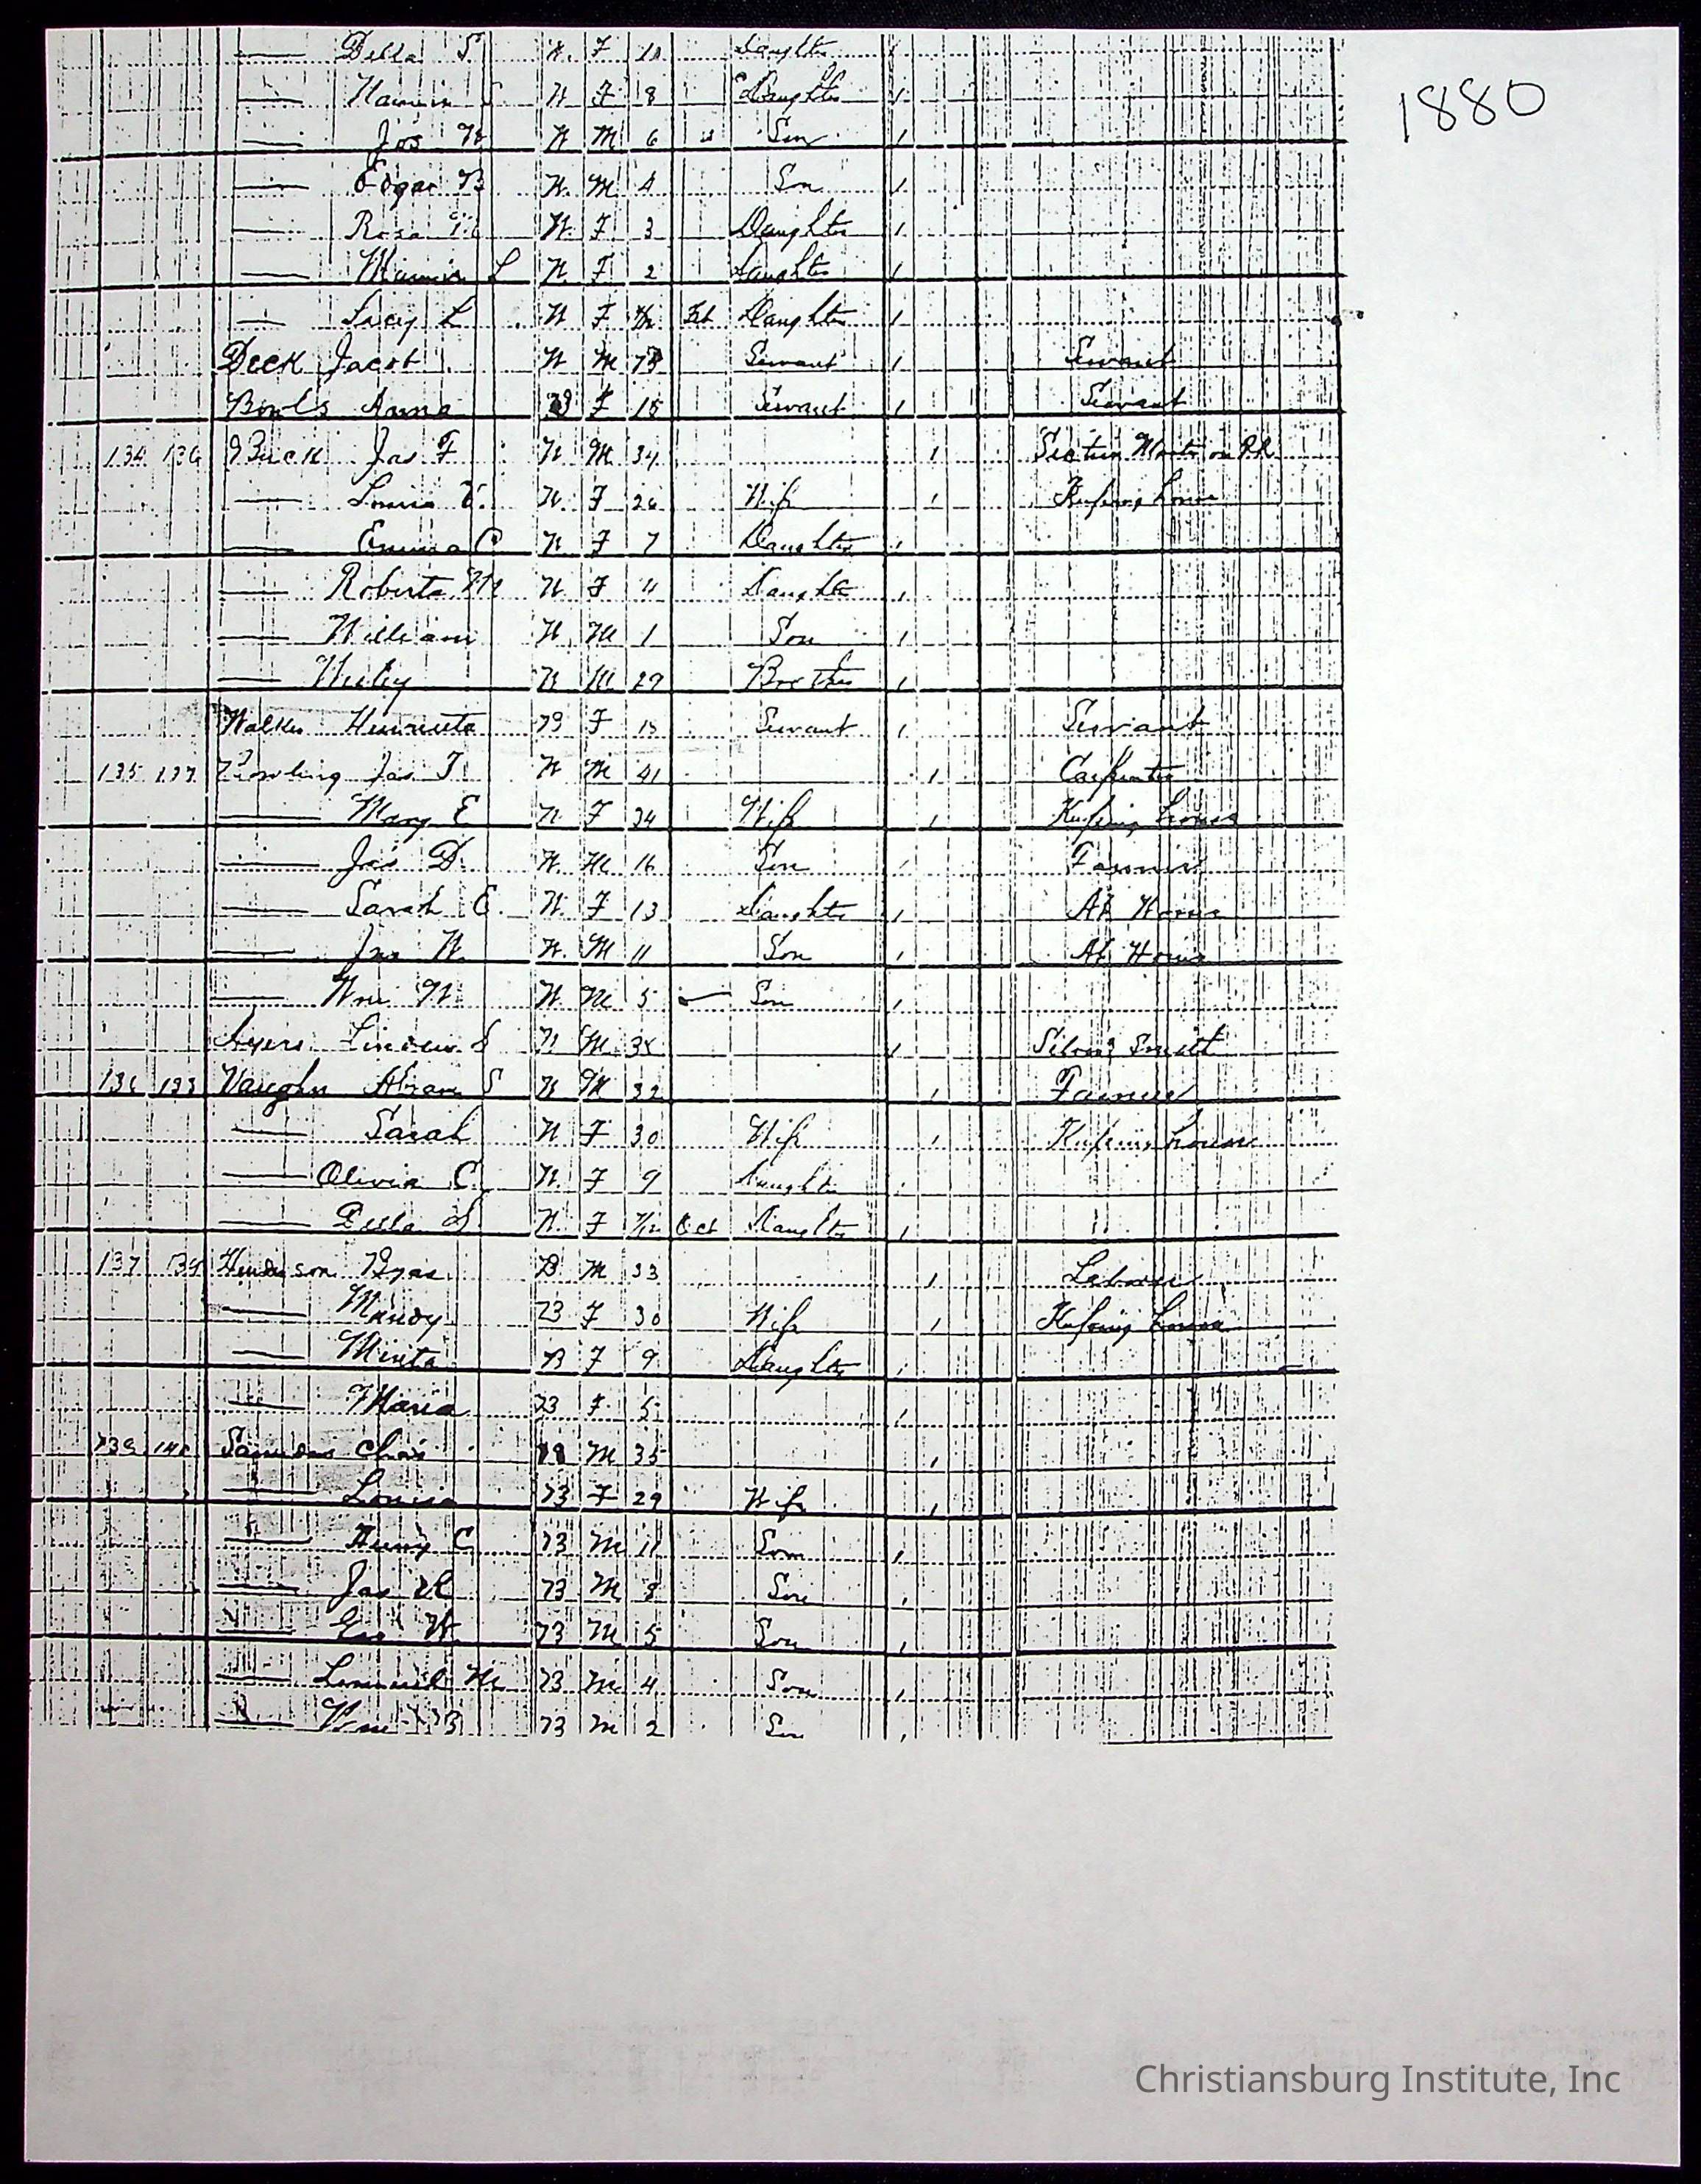 1880
Della S. W. F 10 Daughter 1
S W F 8 Daughter 1
Jos W W M 6 Son 1
Edgar B W. M 4 Son 1
Rosa W. F 3 Daughter 1
L W. F 2 Daughter 1
Lucy L W F Feb Daughter 1
Deck Jacob W M Servant 1 Servant
Bowls Anna F 15 Servant 1 Servant
134 136 Buck Jas F W M 34 1 Section Master on RR
W. F 26 Wife 1 Keeping house
Emma C W F 7 Daughter 1
Roberta M W F 4 Daughter 1
William W. M 1 Son 1
Wesley W M 29 Brother 1
Walker Henrietta B F 15 Servant 1 Servant
135 137 Jas T. W M 41 1 Carpenter
Mary E W. F 34 Wife 1 Keeping house
Jas D. W. M 16 Son 1 Farmer
Sarah E. W. F 13 Daughter 1 At Home
Jno W. W. M 11 Son 1 At Home
Wm W. W. M 5 Son 1
Ayers S W M 1 Silver Smith
136 138 Vaughn Abram S W M 32 1 Farmer
Sarah W F 30 Wife 1 Keeping house
Olivia C. W. F 9 Daughter 1
Della S W. F Oct Daughter 1
137 139 Henderson B M 33 1 Laborer
Mandy B F 30 Wife 1 Keeping house
Minta B F 9 Daughter 1
Maria B F 5 1
138 140 Saunders Chas B M 35 1
Louisa B F 29 Wife 1
Henry C B M 11 Son 1
Jas B M 8 Son 1
Geo W. B M 5 Son 1
Lemuel B M 4 Son 1
Wm B B M 2 Son 1
Christiansburg Institute, Inc